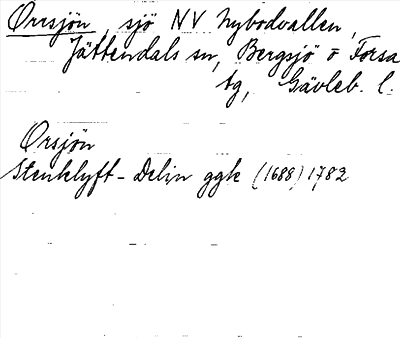 Orrsjön, sjö NV Nybodvallen,
Jättendals sn, Bergsjö o Forsa
tg, Gävleb. l.
Orsjön
Stenklyft-Delin ggk (1688) 1782